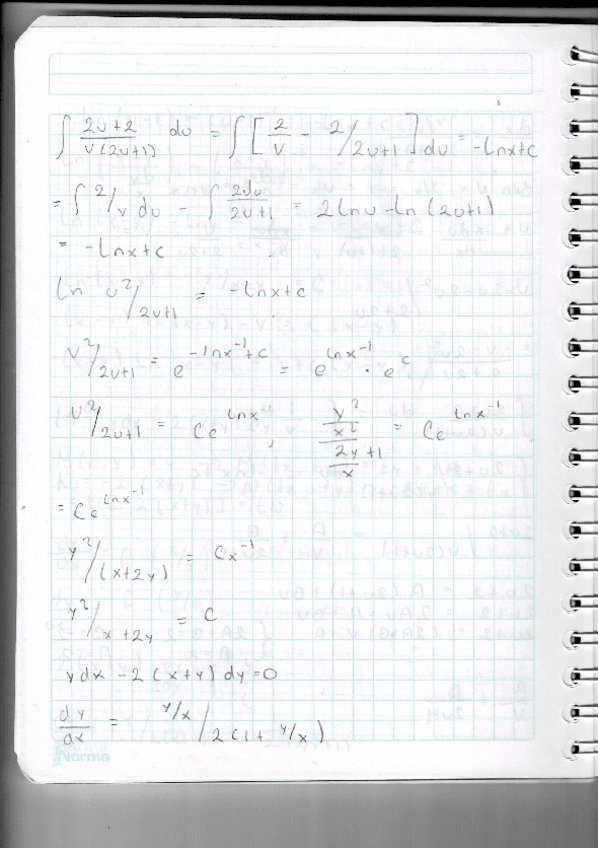 ∫ 2v+2 / v(2v+1) dv = ∫ [ 2/v - 2/2v+1 ] dv = -lnx+c
= ∫ 2/v dv - ∫ 2dv/2v+1 = 2lnv - ln(2v+1)
= -lnx+c
ln v²/2v+1 = -lnx+c
v²/2v+1 = e^(-lnx^-1+c) = e^(lnx^-1) · e^c
v²/2v+1 = Ce^(lnx^-1), (y²/x²)/(2y/x+1) = Ce^(lnx^-1)
= Ce^(lnx^-1)
y²/(x+2y) = Cx^-1
y²/x+2y = C
ydx - 2(x+y)dy=0
dy/dx = y/x / 2(1+y/x)
Norma